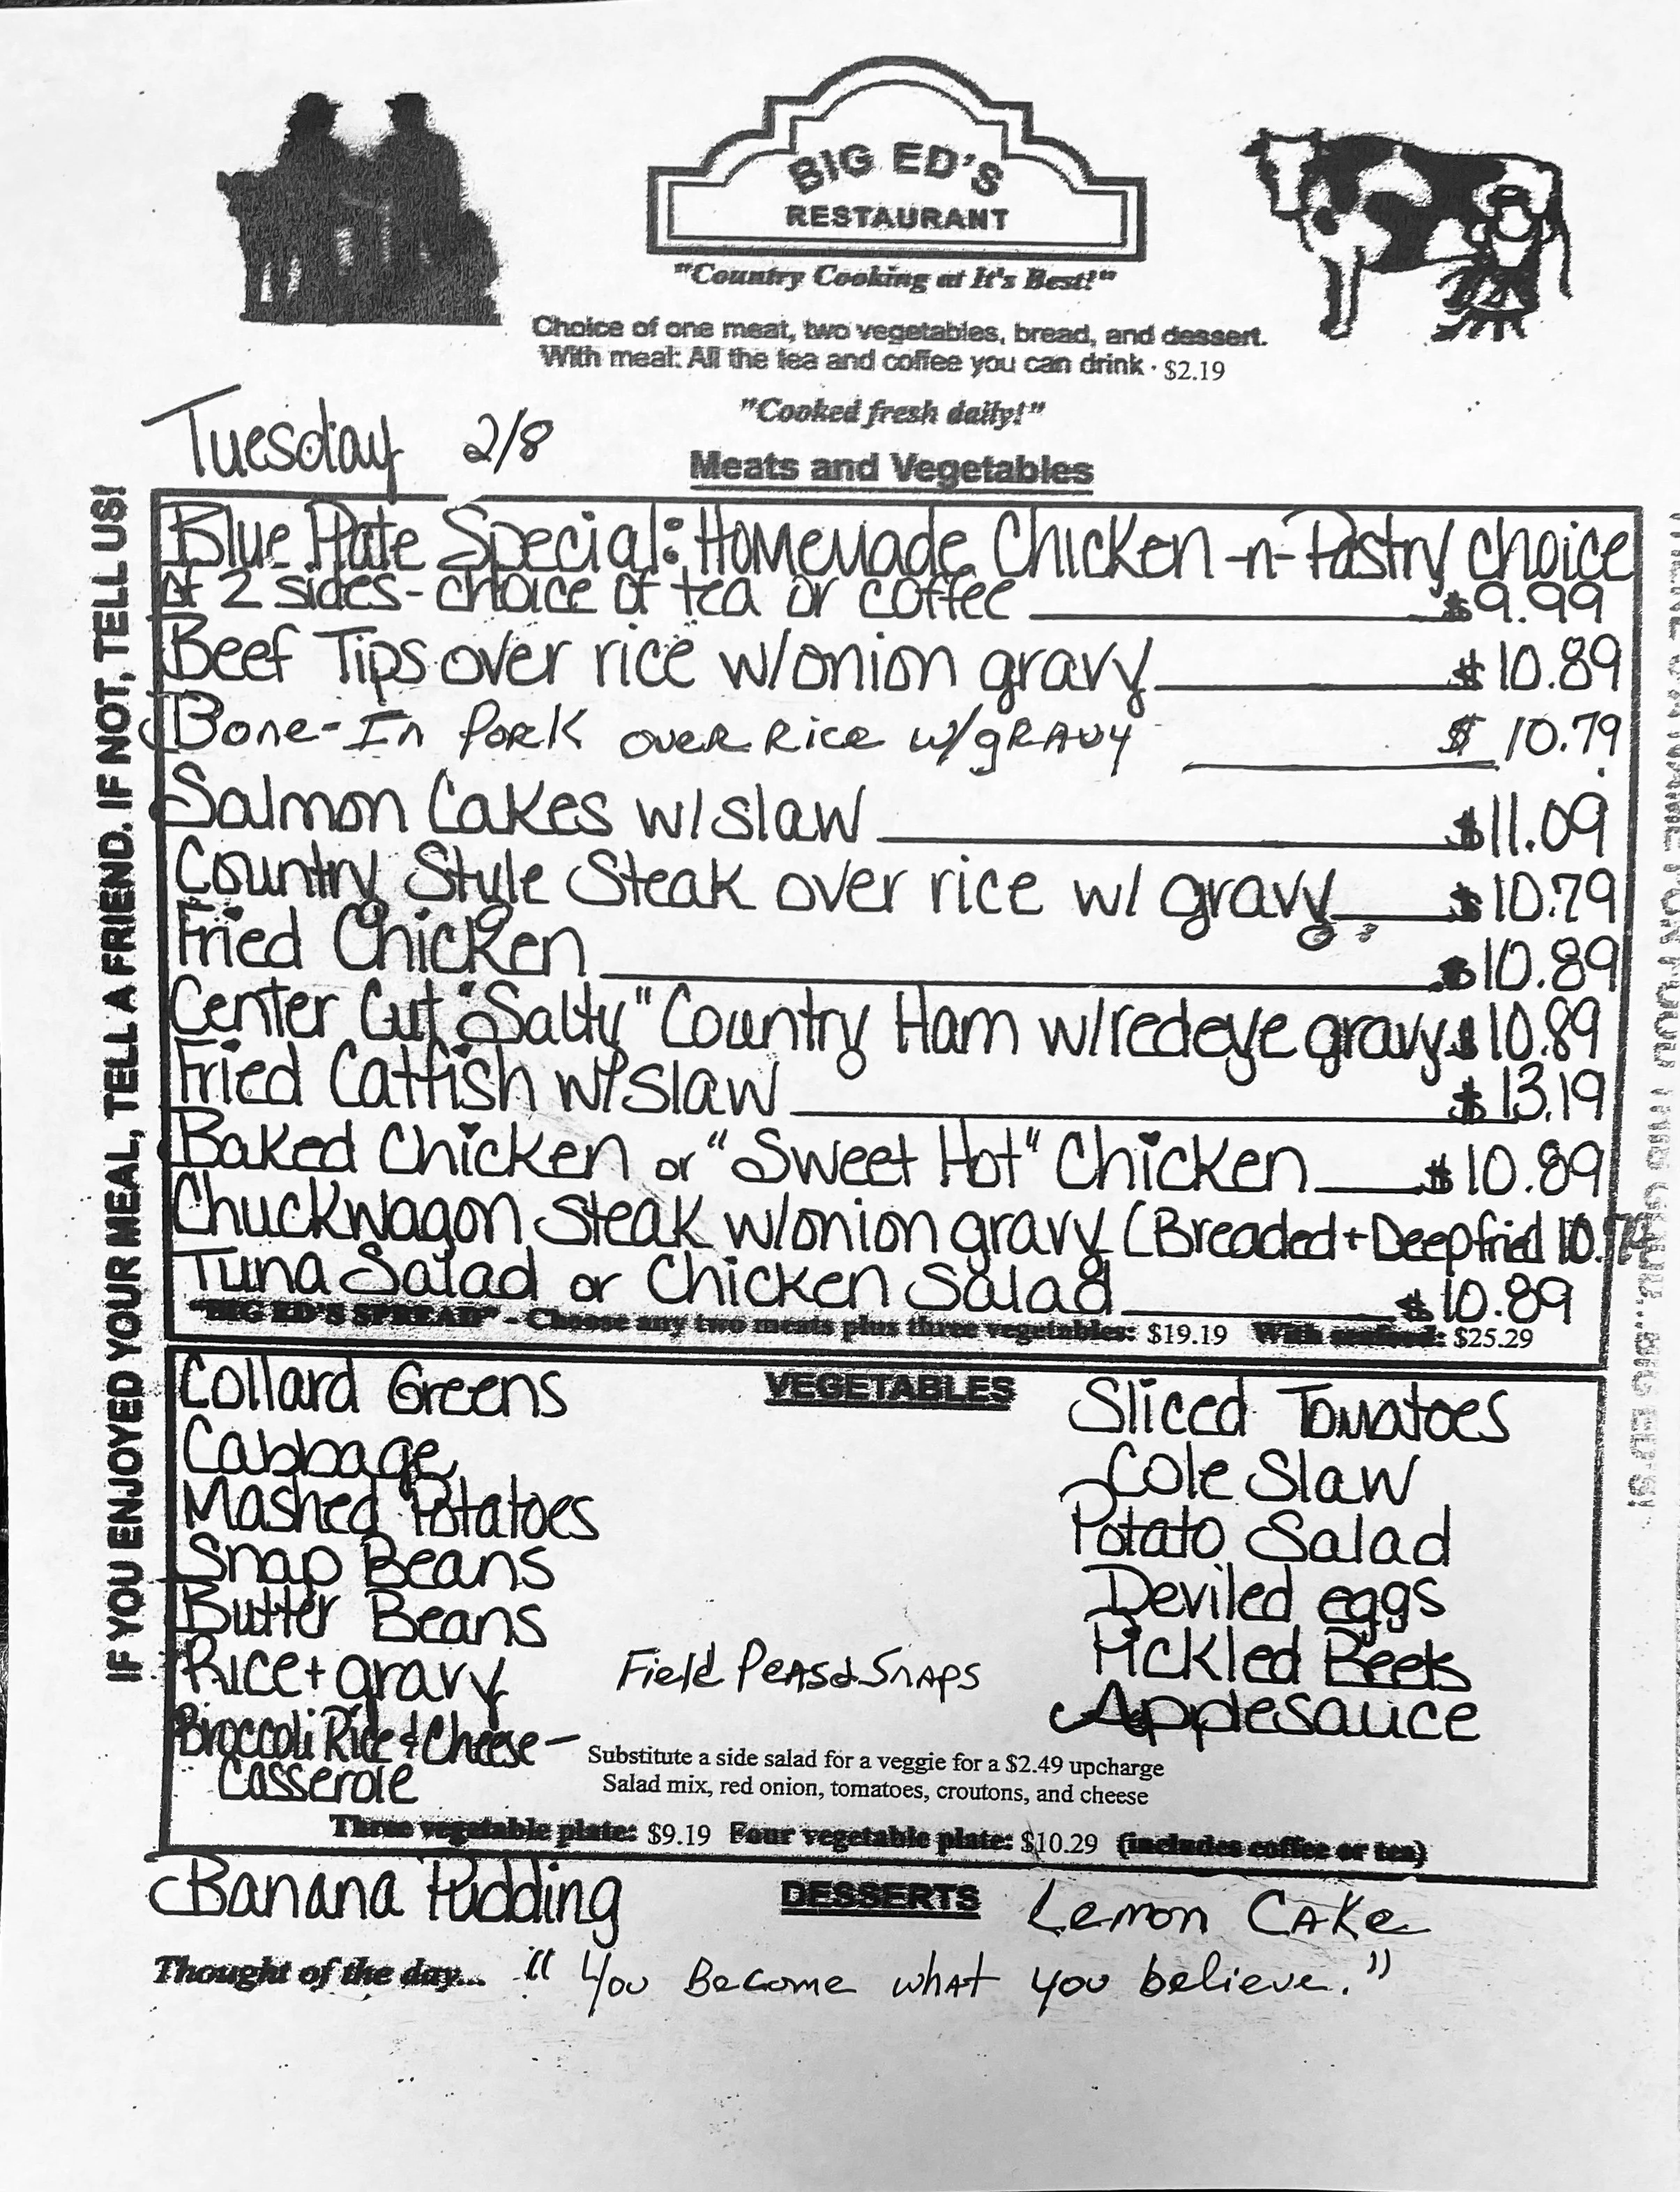 BIG ED'S
RESTAURANT
"Country Cooking at It's Best!"
Choice of one meat, two vegetables, bread, and dessert.
With meal: All the tea and coffee you can drink · $2.19
"Cooked fresh daily!"
Tuesday 2/8
Meats and Vegetables
Blue Plate Special: Homemade Chicken-n-Pastry choice
of 2 sides - choice of tea or coffee $9.99
Beef Tips over rice w/onion gravy $10.89
Bone-In Pork over Rice w/gravy $10.79
Salmon Cakes w/slaw $11.09
Country Style Steak over rice w/ gravy $10.79
Fried Chicken $10.89
Center Cut "Salty" Country Ham w/redeye gravy $10.89
Fried Catfish w/slaw $13.19
Baked Chicken or "Sweet Hot" Chicken $10.89
Chuckwagon Steak w/onion gravy (Breaded + Deepfried
Tuna Salad or Chicken Salad $10.89
"BIG ED'S SPREAD" - Choose any two meats plus three vegetables: $19.19 With seafood: $25.29
VEGETABLES
Collard Greens
Cabbage
Mashed Potatoes
Snap Beans
Butter Beans
Rice + gravy
Broccoli Rice & Cheese -
Casserole
Field Peas & Snaps
Sliced Tomatoes
Cole Slaw
Potato Salad
Deviled eggs
Pickled Beets
Applesauce
Substitute a side salad for a veggie for a $2.49 upcharge
Salad mix, red onion, tomatoes, croutons, and cheese
Three vegetable plate: $9.19 Four vegetable plate: $10.29 (includes coffee or tea)
DESSERTS
Banana Pudding
Lemon Cake
Thought of the day... "You Become what you believe."
IF YOU ENJOYED YOUR MEAL, TELL A FRIEND. IF NOT, TELL US!